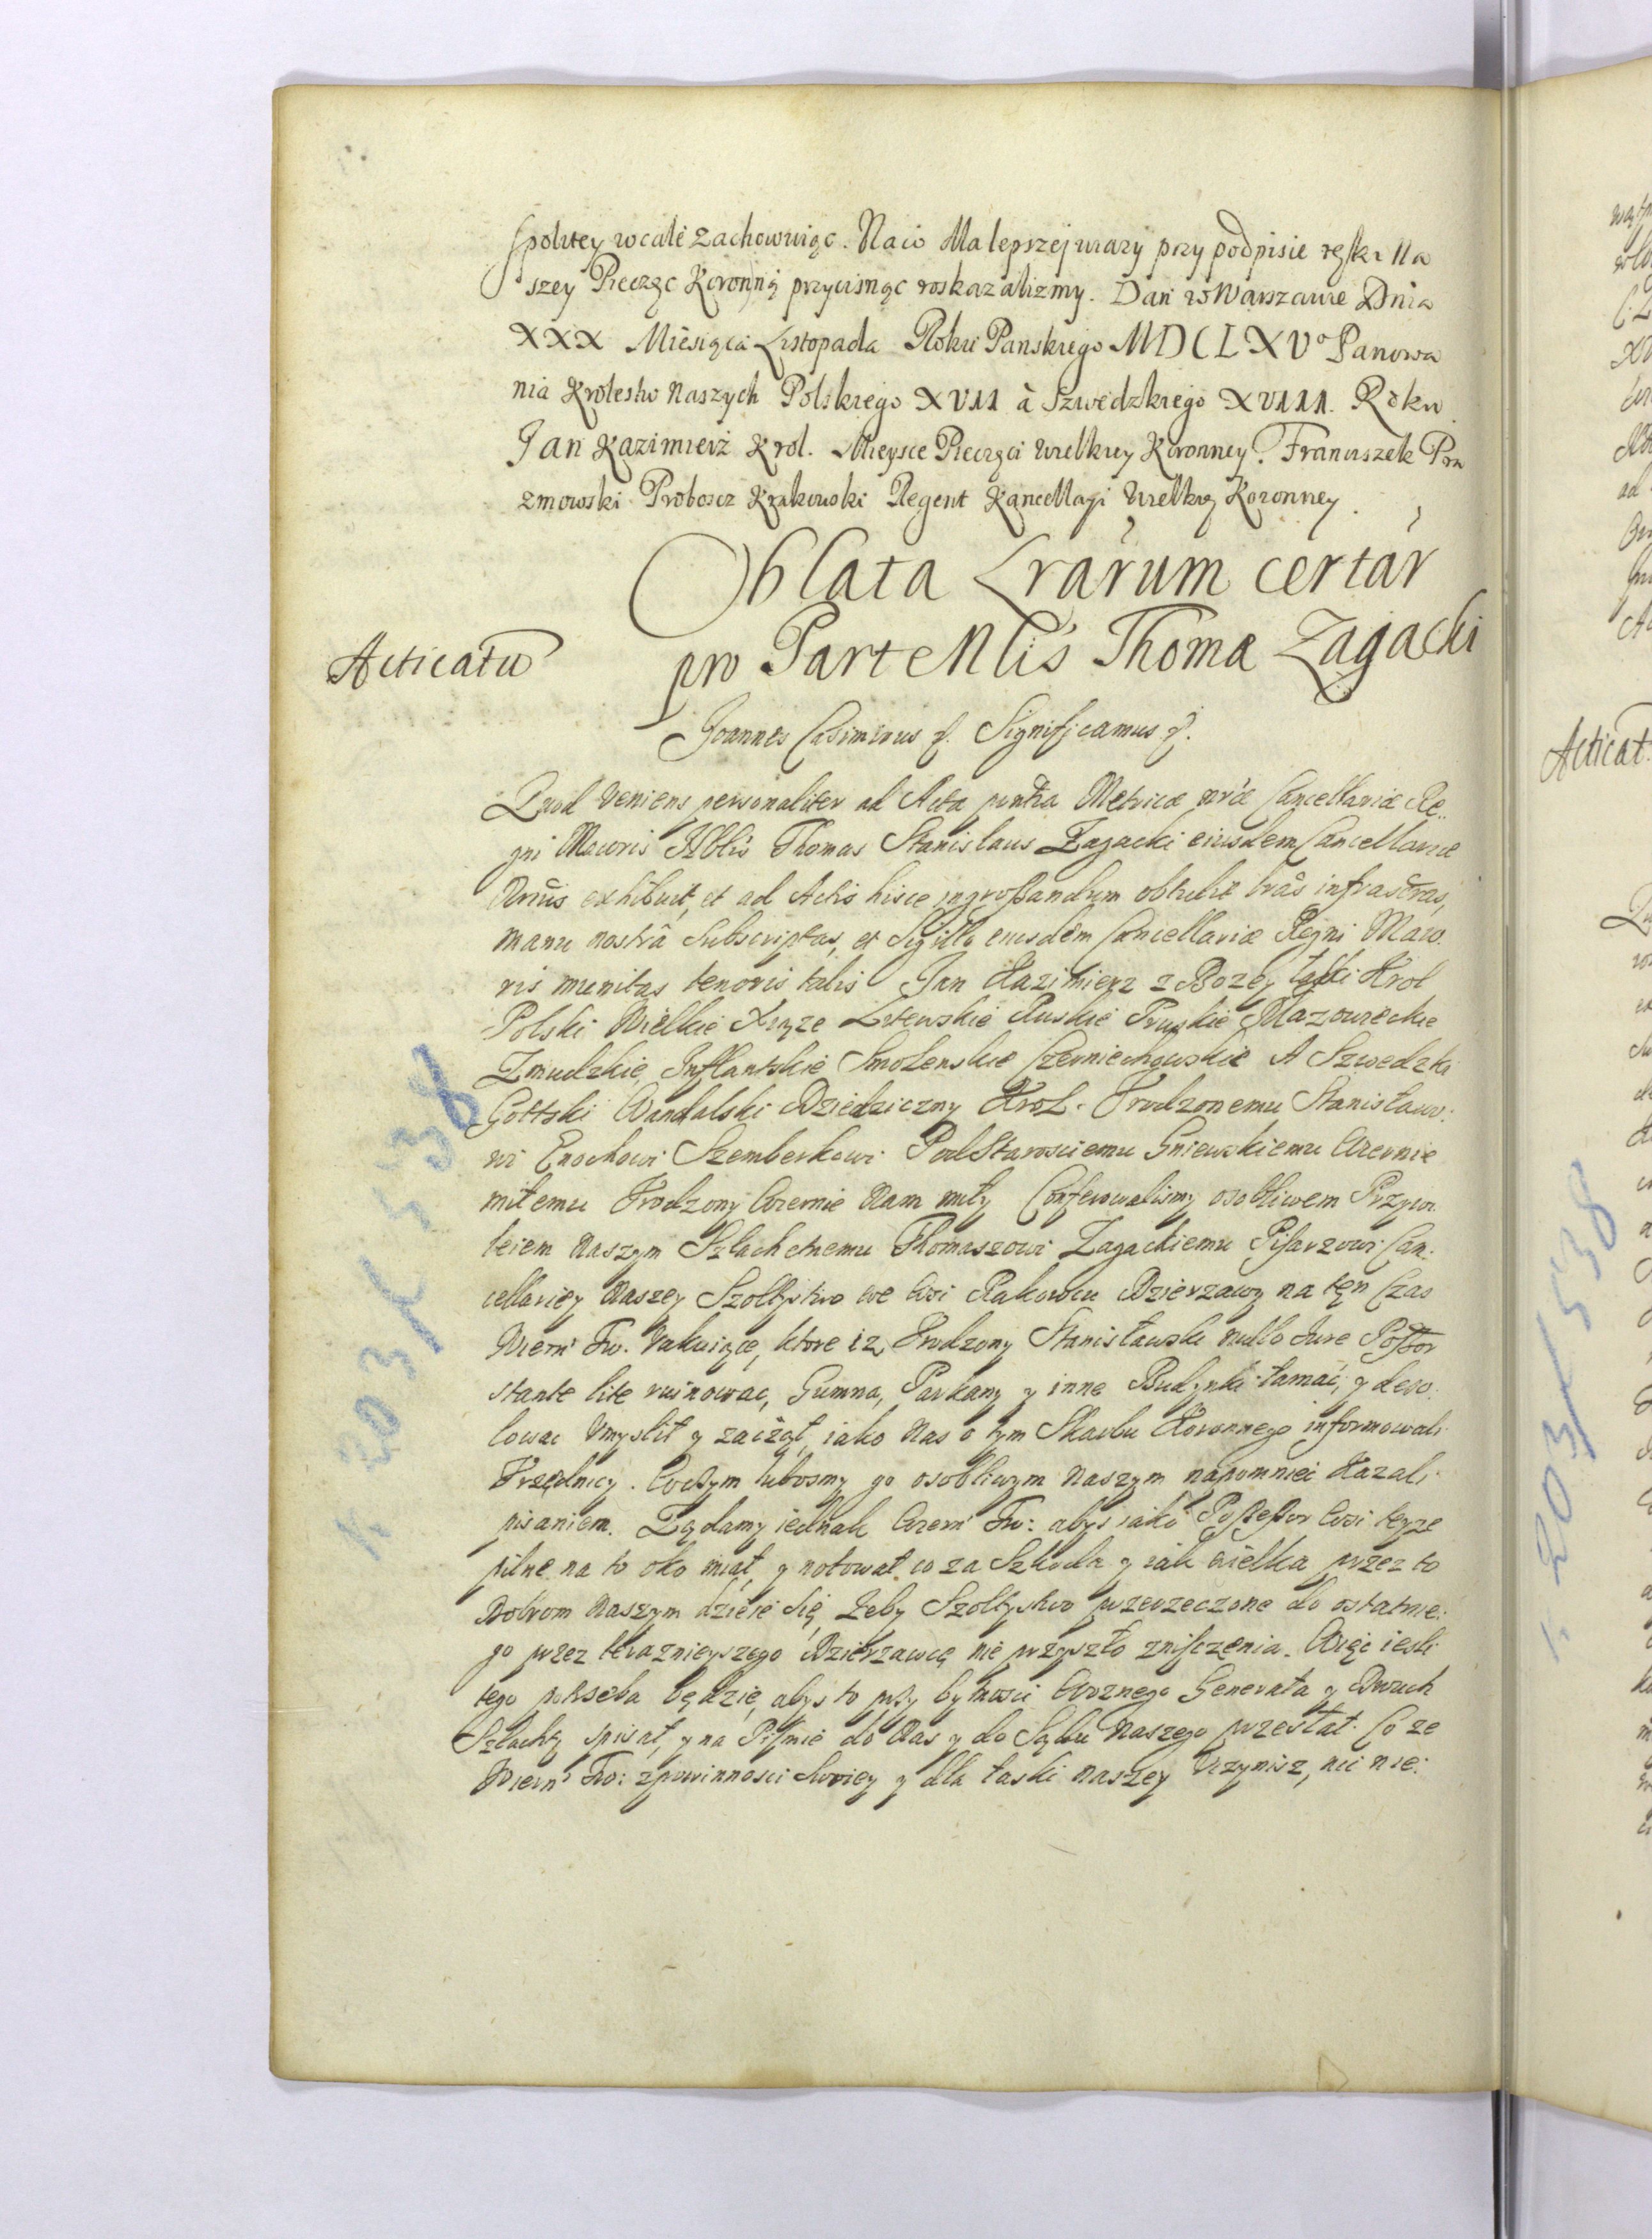 spolitey wcale zachowuiąc. Na co dla lepszej wiary przy podpisie ręki Na
szey Pieczęc Koronną przycisnąc roskazalizmy. Dan w Warszawie Dnia
XXX Miesiąca Listopada Roku Panskiego MDCLXV° Panowa
nia Krolestw Naszych Polskiego XVII à Szwedzkiego XVIII. Roku
Jan Kazimierz Krol. Mieysce Pieczęci wielkiey Koronney. Franciszek Pra
zmowski Proboscz Krakowski Regent Kancellaryi Wielkiey Koronney.
Oblata Lrarum certar
Acticatu
pro Parte Nlis Thoma Zagacki
Joannes Casimirus &. Significamus &.
Quod veniens personaliter ad Acta pñtia Metricæ nræ Cancellariæ Re..
gni Maioris Nblis Thomas Stanislaus Zagacki eiusdem Cancellariæ
exhibuit, et ad Actis hisce ingrossandum obtulit lras infrascras,
manu nostrâ Subscriptas, et Sigillo eiusdem Cancellariæ Regni Maio.
ris munitas tenoris talis Jan Kazimierz z Bozey łaski Krol
Polski Wielkie Xiąze Litewskie Ruskie Pruskie Mazowieckie
Zmudzkie, Inflantskie Smolenskie Czerniechowskie A Szwedzki
Gottski Wandalski Dziedziczny Krol. Urodzonemu Stanisław.
wi Enochowi Szemberkowi PodStarosciemu Gniewskiemu Wiernie
miłemu Urodzony Wiernie Nam miły Conferowalismy osobliwem Przywi.
leiem Naszym Szlachetnemu Thomaszowi Zagackiemu Pisarzowi Can.
cellariey Naszey Szoltystwo we Wsi Rakowcu Dzierzawy na tęn Czas
Wiern Tw. Vakuiące, ktore iz Urodzony Stanisławski nullo Iure Possor
stante lite ruinowac, Gumna, Parkany y inne Budynki łamać, y deso.
lowac Vmyslit y zaczął, iako Nas o tym Skarbu Koronnego informowali
Urzędnicy. Oczym lubosmy go osobliwym Naszym napomniec Kazali
pisaniem. Ządamy iednak Wiern Tw: abys iako Possessor Wsi teyze
pilne na to oko miał, y notował, co za Szkoda y iak wielka przez to
Dobrom Naszym dzieie się, Zeby Szoltystwo przerzeczone do ostatnie.
go przez terazniejszego Dzierzawcę nie przyszło zniszczenia. Więc iesli
tego potrzeba będzie, abys to przy bytnosci Woznego Generała y Dwuch
Szlachty spisał, y na Pismie do Nas y do Sądu Naszego przesłał. Co ze
Wiern Tw: z powinnosci swoiey y dla łaski Naszey Uczynisz, nic nie: